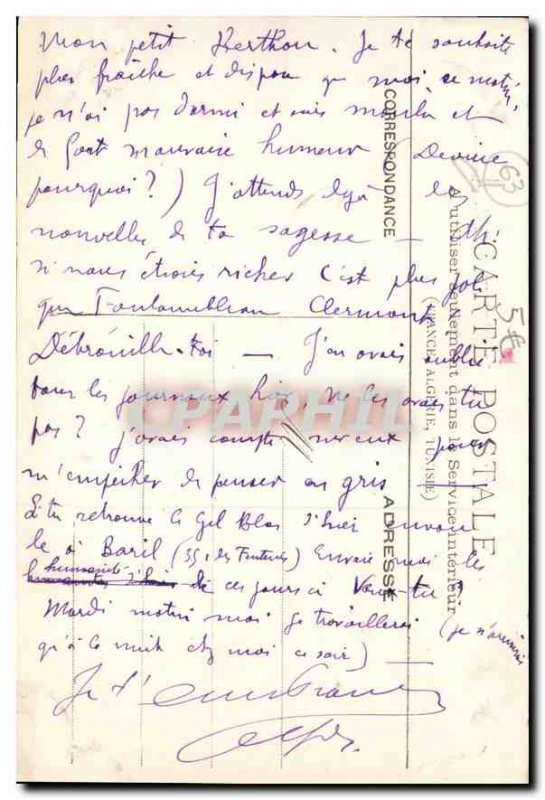 Mon petit Kerthou. Je te souhaite
plus fraîche et dispou que moi, ce matin,
je n'ai pas dormi et suis moulu et
de fort mauvaise humeur (Devine
pourquoi ?) J'attends déjà les
nouvelles de ta sagesse —
si nous étions riches c'est plus joli
que Fontainebleau Clermont
Débrouille-toi — J'en avais oublié
tous les journaux hier, ne les avais tu
pas ? j'avais compté sur eux pour
m'empêcher de penser en gris
Si tu retrouve le Gil Blas d'hier envoie
le à Baril (35, des Fontenes) Envoie moi les
humanité de ces jours ci Veux-tu ?
Mardi matin moi je travaillerai (je n'arrivais
qu'à la nuit chez moi ce soir) —
Je t'embrasse
CARTE POSTALE
à utiliser seulement dans le Service intérieur
(FRANCE, ALGÉRIE, TUNISIE)
CORRESPONDANCE
ADRESSE
63
5€
CPARPHIL